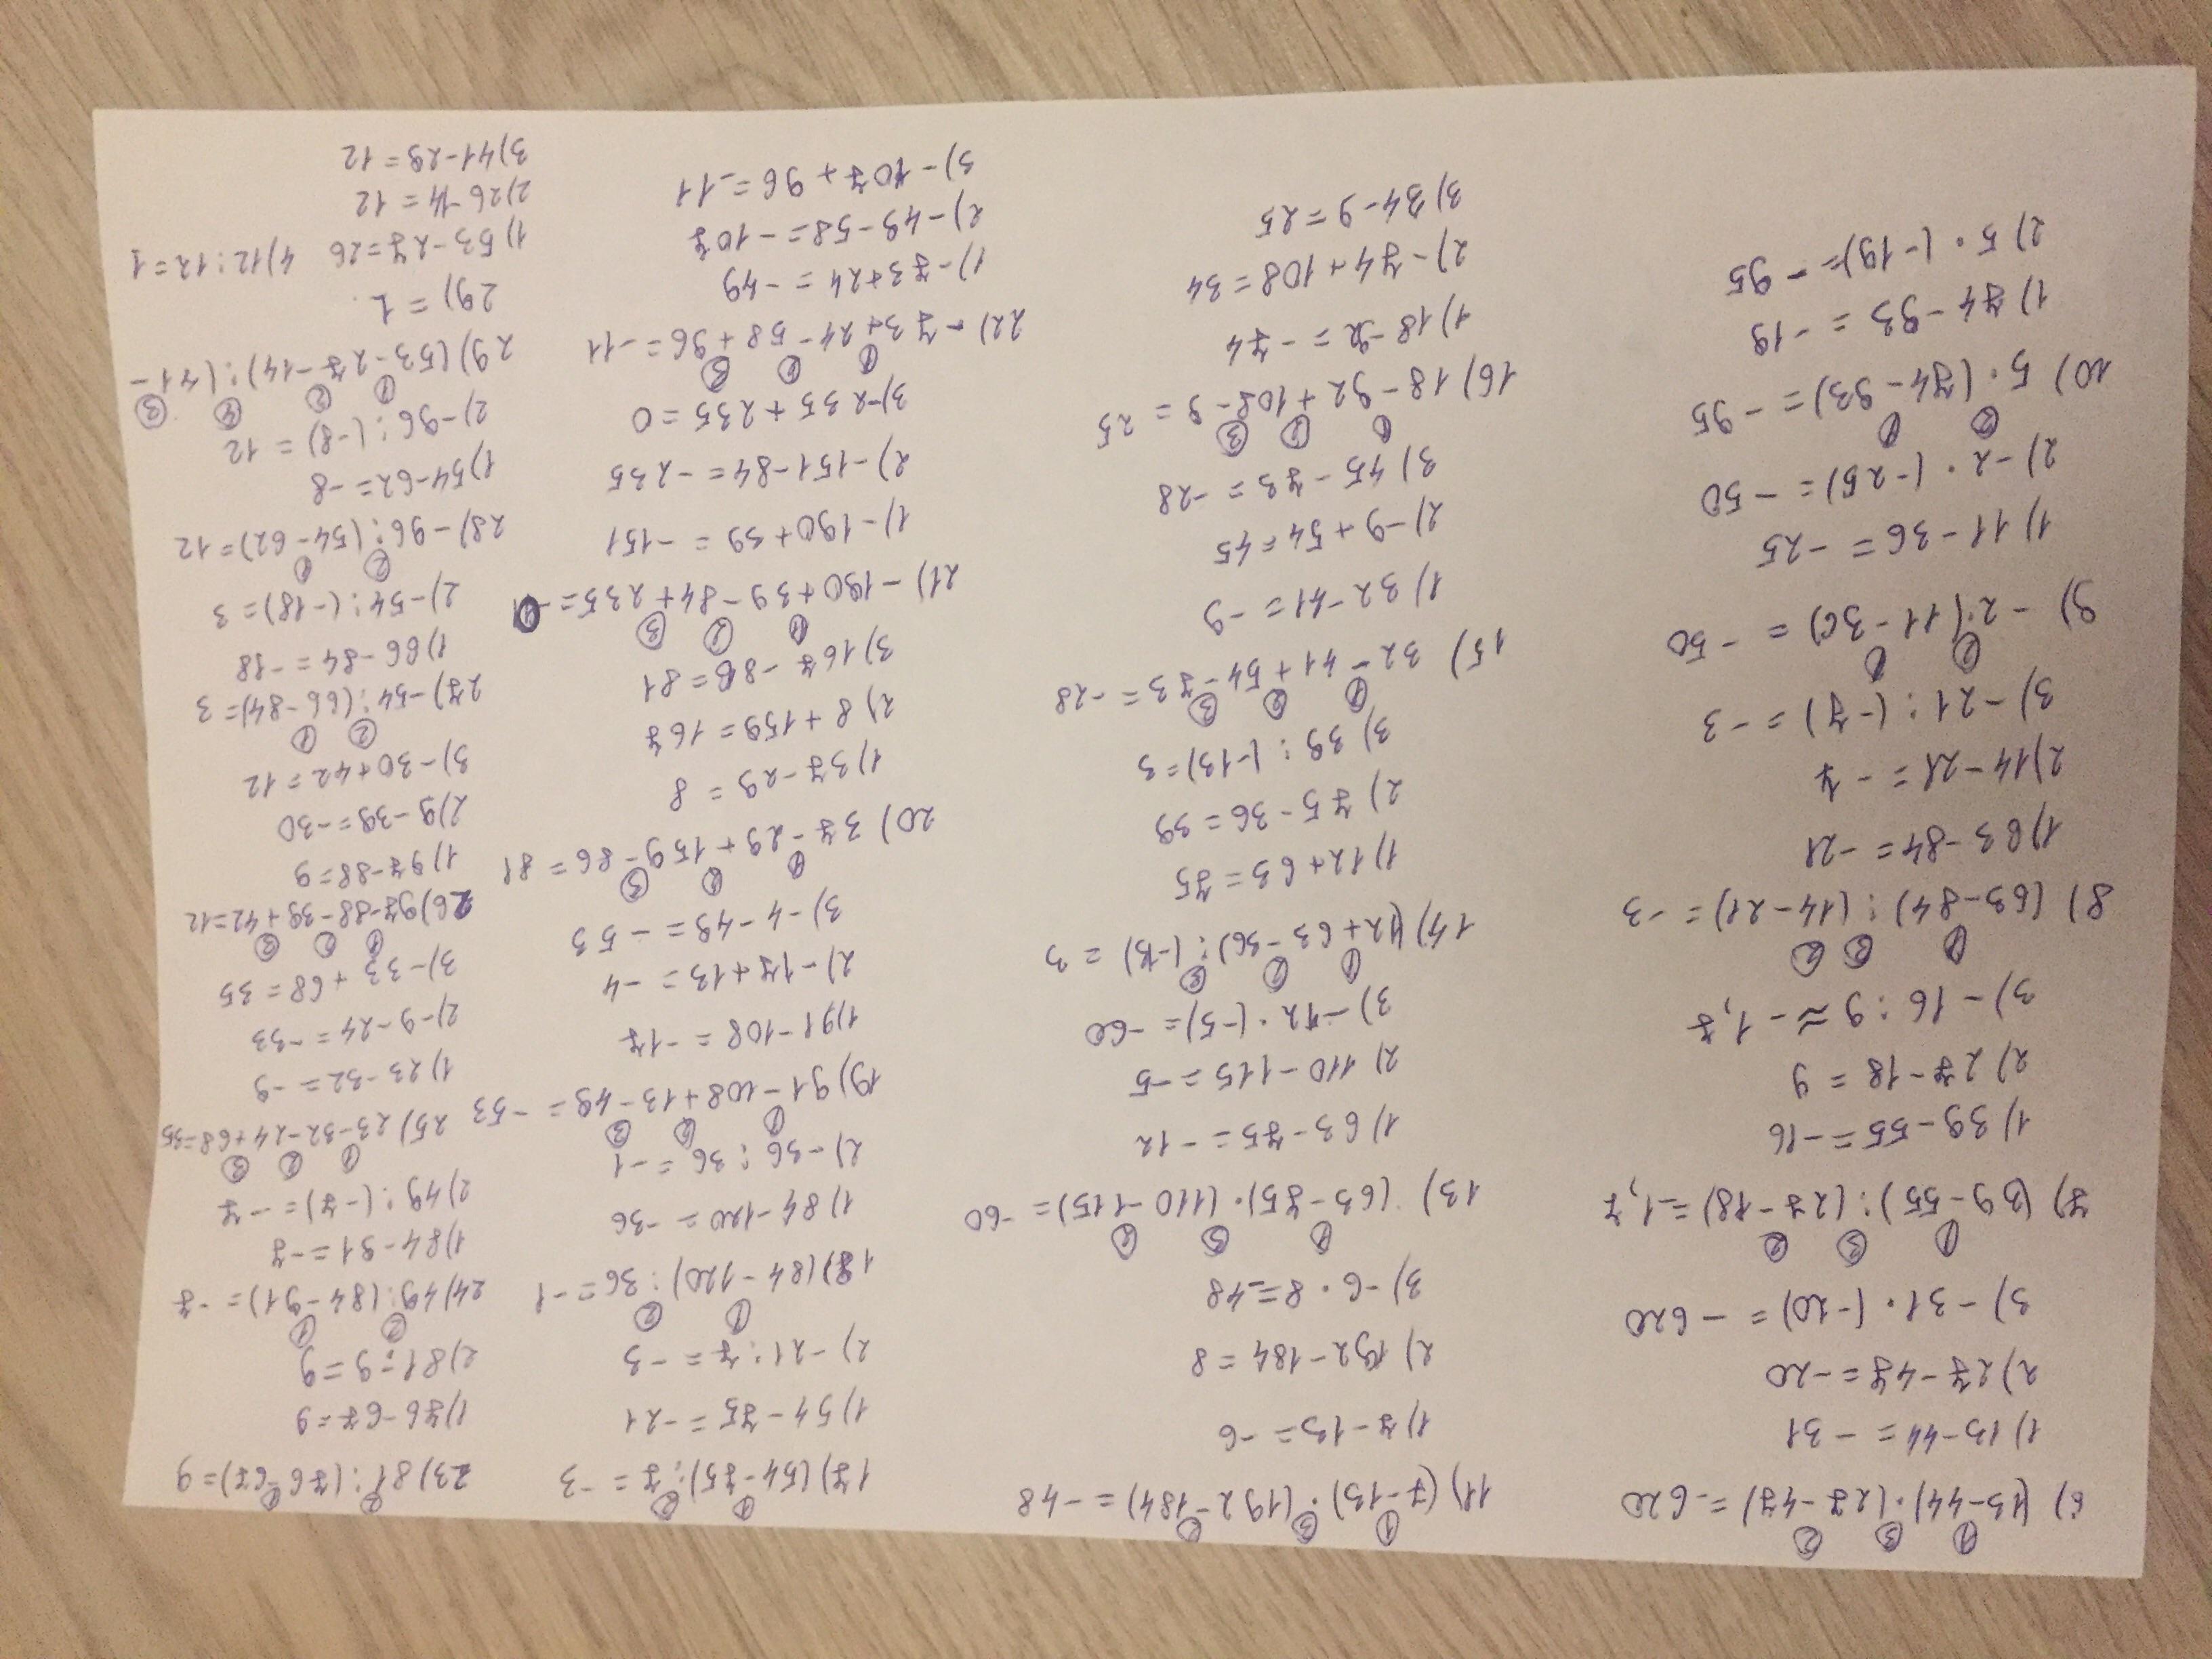 ① ③ ②
6) (13-44)·(27-47) = -620
1) 13-44 = -31
2) 27-47 = -20
3) -31·(-20) = -620
① ③ ②
7) (39-55):(27-18) = -1,7
1) 39-55 = -16
2) 27-18 = 9
3) -16:9 ≈ -1,7
① ③ ②
8) (63-84):(14-21) = -3
1) 63-84 = -21
2) 14-21 = -7
3) -21:(-7) = -3
② ①
9) -2·(11-36) = -50
1) 11-36 = -25
2) -2·(-25) = -50
② ①
10) 5·(74-93) = -95
1) 74-93 = -19
2) 5·(-19) = -95
① ③ ②
11) (7-13)·(192-184) = -48
1) 7-13 = -6
2) 192-184 = 8
3) -6·8 = -48
① ③ ②
13) (63-75)·(110-115) = -60
1) 63-75 = -12
2) 110-115 = -5
3) -12·(-5) = -60
① ② ③
14) (12+63-36):(-13) = 3
1) 12+63 = 75
2) 75-36 = 39
3) 39:(-13) = 3
① ② ③
15) 32-41+54-73 = -28
1) 32-41 = -9
2) -9+54 = 45
3) 45-73 = -28
① ② ③
16) 18-92+108-9 = 25
1) 18-92 = -74
2) -74+108 = 34
3) 34-9 = 25
① ②
17) (54-75):7 = -3
1) 54-75 = -21
2) -21:7 = -3
① ②
18) (84-120):36 = -1
1) 84-120 = -36
2) -36:36 = -1
① ② ③
19) 91-108+13-49 = -53
1) 91-108 = -17
2) -17+13 = -4
3) -4-49 = -53
① ② ③
20) 37-29+159-86 = 81
1) 37-29 = 8
2) 8+159 = 167
3) 167-86 = 81
① ② ③
21) -190+39-84+235 = 0
1) -190+39 = -151
2) -151-84 = -235
3) -235+235 = 0
① ② ③
22) -73+24-58+96 = -11
1) -73+24 = -49
2) -49-58 = -107
3) -107+96 = -11
② ①
23) 81:(76-67) = 9
1) 76-67 = 9
2) 81:9 = 9
② ①
24) 49:(84-91) = -7
1) 84-91 = -7
2) 49:(-7) = -7
① ② ③
25) 23-32-24+68 = 35
1) 23-32 = -9
2) -9-24 = -33
3) -33+68 = 35
① ② ③
26) 97-88-39+42 = 12
1) 97-88 = 9
2) 9-39 = -30
3) -30+42 = 12
② ①
27) -54:(66-84) = 3
1) 66-84 = -18
2) -54:(-18) = 3
② ①
28) -96:(54-62) = 12
1) 54-62 = -8
2) -96:(-8) = 12
① ② ④ ③
29) (53-27-14):(41-
29) = 1.
1) 53-27 = 26 4) 12:12 = 1
2) 26-14 = 12
3) 41-29 = 12